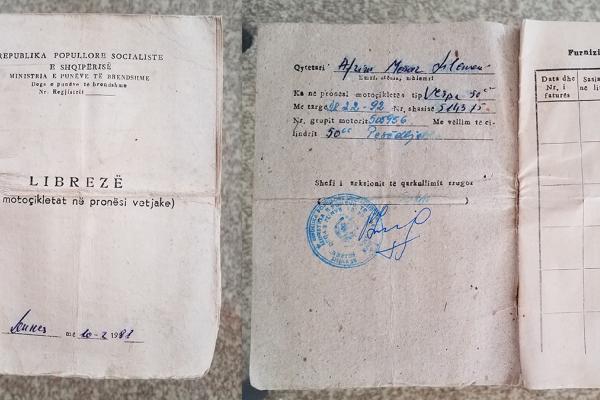 REPUBLIKA POPULLORE SOCIALISTE
E SHQIPËRISË
MINISTRIA E PUNËVE TË BRENDSHME
Dega e punëve të brendshme
Nr. Regjistrit
LIBREZË
motoçikletat në pronësi vetjake)
më 10-2 1981
Qytetari Afrim
Emri, atësia, mbiemri
Ka në pronësi motoçikletës tip Vespa 50cc
Me targë 22-92 Nr. shasisë 514315
Nr. grupit motorit 505956 Me vëllim të ci-
lindrit 50cc
Shefi i seksionit të qarkullimit rrugor
( )
Furnizi
Data dhe
Nr. i
faturës
Sasi
në li